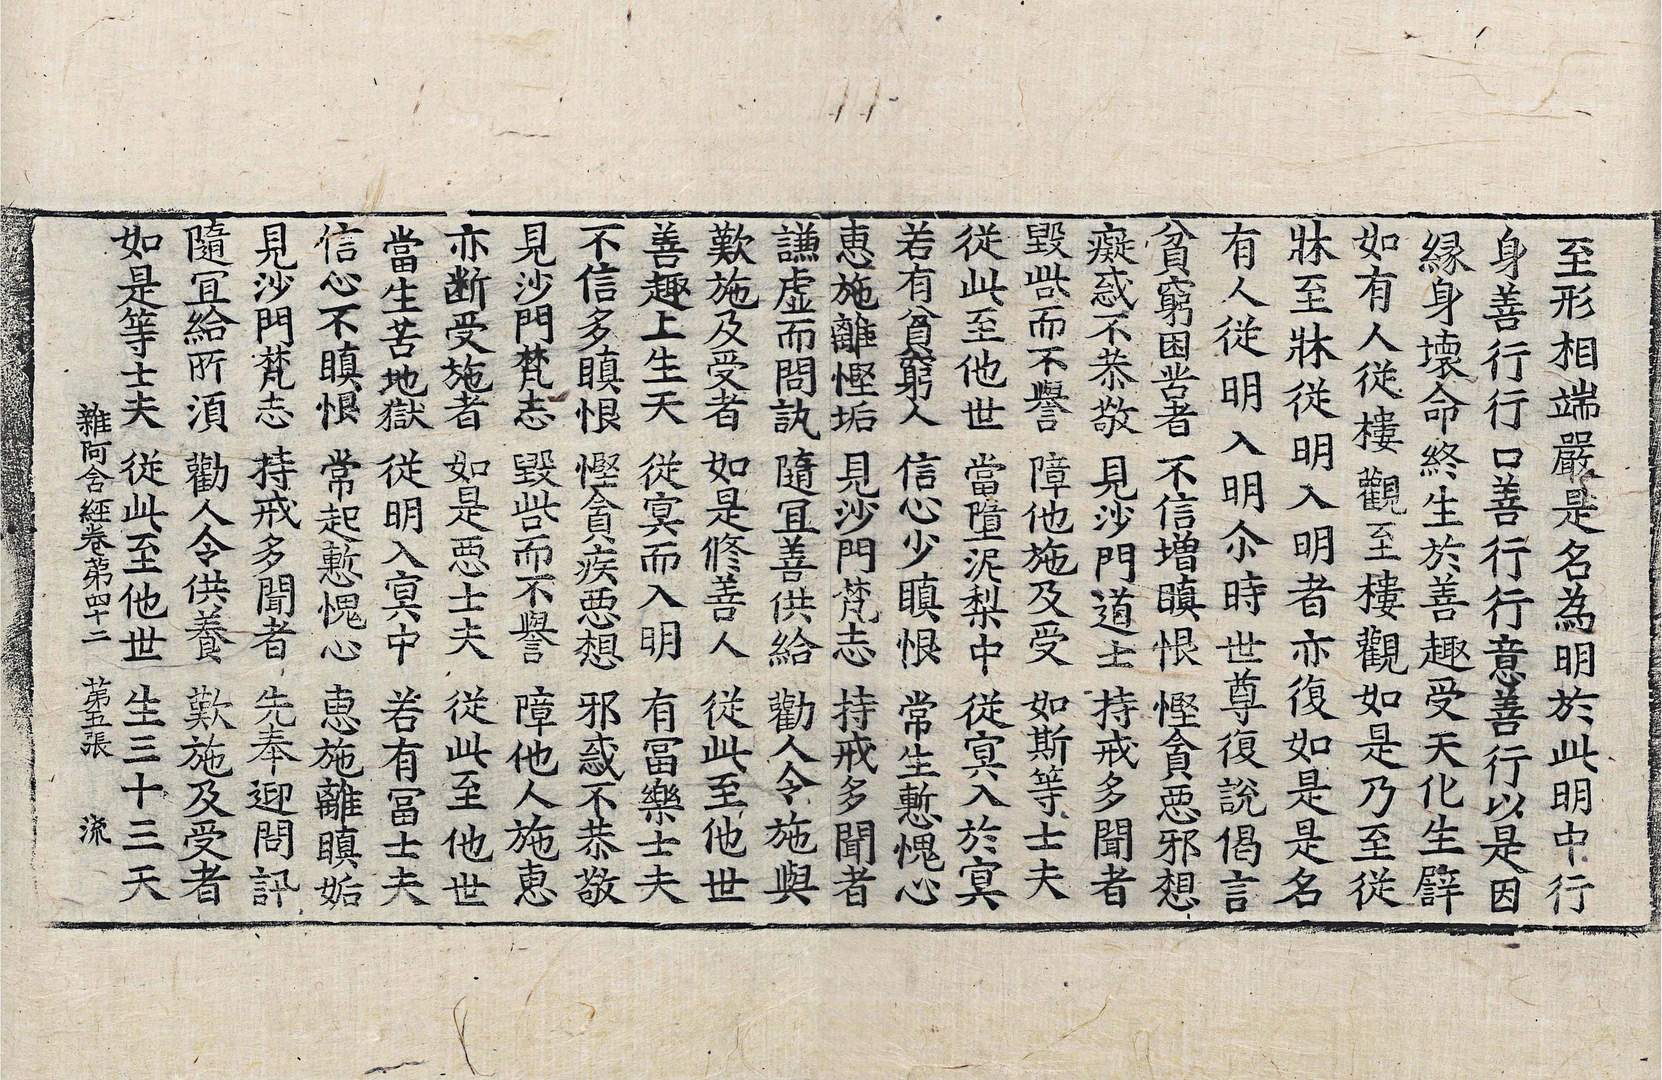 至形相端嚴是名為明於此明中行
身善行行口善行行意善行以是因
緣身壞命終生於善趣受天化生譬
如有人從樓觀至樓觀如是乃至從
牀至牀從明入明者亦復如是是名
有人從明入明尒時世尊復說偈言
貧窮困苦者 不信增瞋恨 慳貪惡邪想
癡惑不恭敬 見沙門道士 持戒多聞者
毀呰而不譽 障他施及受 如斯等士夫
從此至他世 當墮泥梨中 從冥入於冥
若有貧窮人 信心少瞋恨 常生慙愧心
惠施離慳垢 見沙門梵志 持戒多聞者
謙虛而問訊 隨冝善供給 勸人令施與
歎施及受者 如是修善人 從此至他世
善趣上生天 從冥而入明 有冨樂士夫
不信多瞋恨 慳貪疾惡想 邪惑不恭敬
見沙門梵志 毀呰而不譽 障他人施惠
亦斷受施者 如是惡士夫 從此至他世
當生苦地獄 從明入冥中 若有冨士夫
信心不瞋恨 常起慙愧心 惠施離瞋妬
見沙門梵志 持戒多聞者 先奉迎問訊
隨冝給所湏 勸人令供養 歎施及受者
如是等士夫 從此至他世 生三十三天
雜阿含經卷第四十二 第五張 流